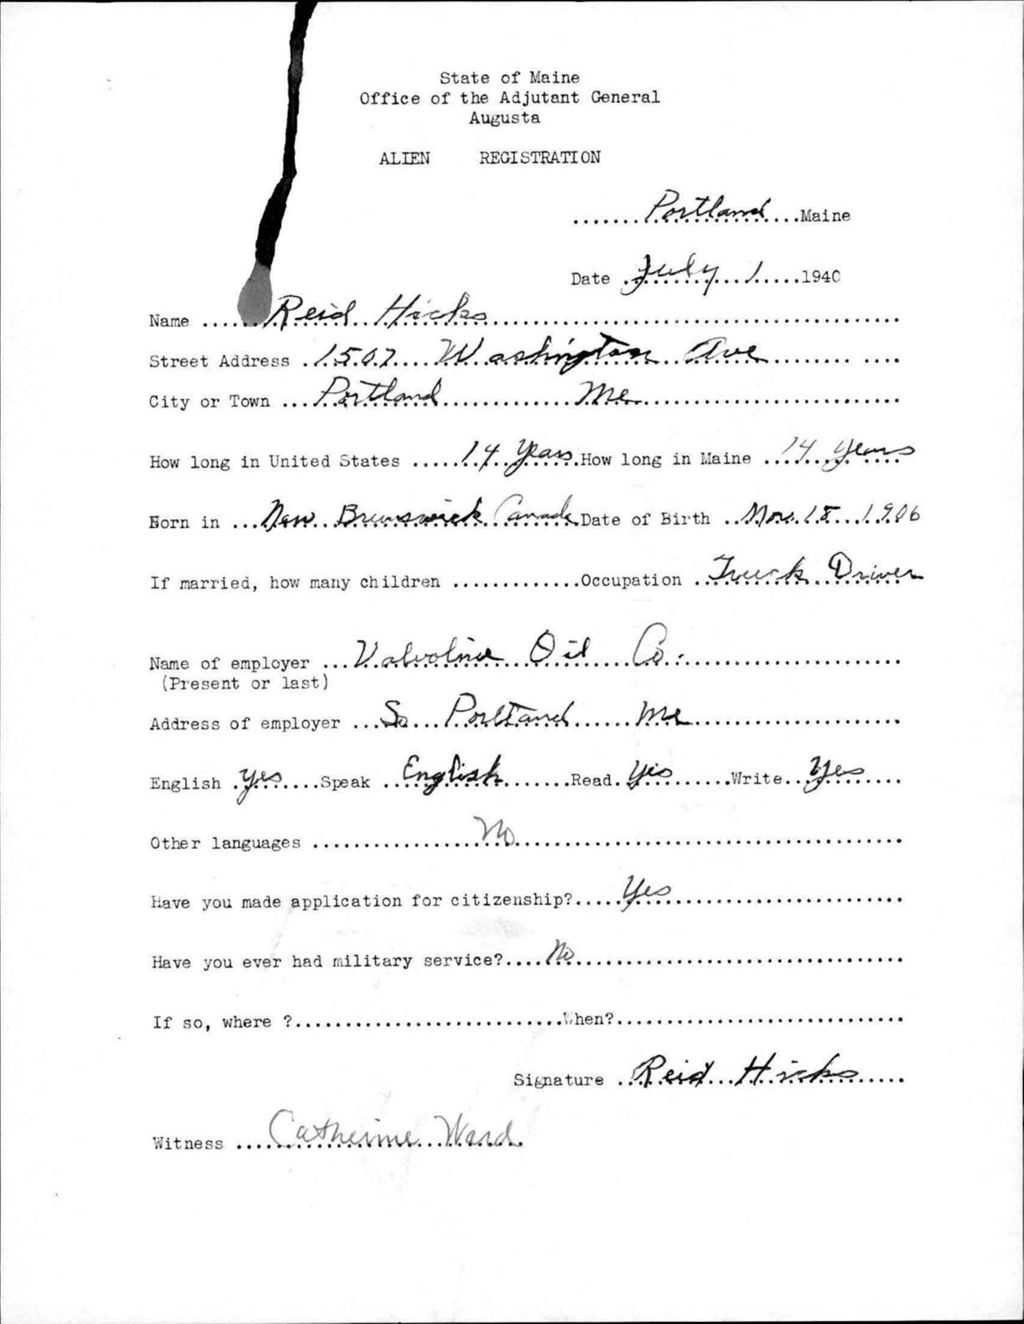 State of Maine
Office of the Adjutant General
Augusta
ALIEN REGISTRATION
.......Portland...Maine
Date .July 1.....1940
Name ......Reid Hicks..........
Street Address .1507 Washington Ave.......
City or Town ...Portland.............Me..........
How long in United States .....14 Years.How long in Maine ...14 years
Born in ...New Brunswick Canada Date of Birth ..Nov. 18 1906
If married, how many children .............Occupation ..Truck Driver
Name of employer ...Valvoline Oil Co...........
(Present or last)
Address of employer ...So Portland Me..........
English .Yes....Speak ..English.......Read.Yes.......Write..Yes....
Other languages .................No..........
Have you made application for citizenship?.....Yes..........
Have you ever had military service?....No..........
If so, where ?..........When?..........
Signature ..Reid Hicks.....
Witness ....Catherine Ward.